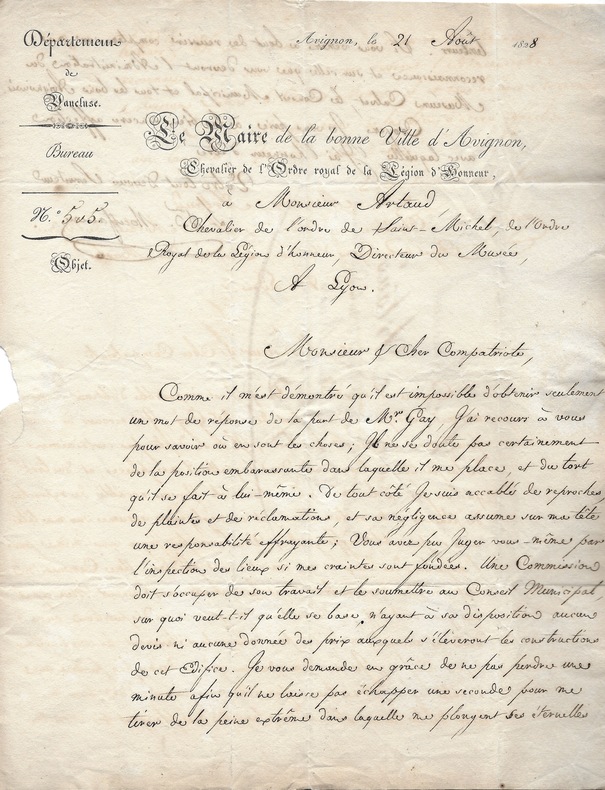 Département
de
Vaucluse.
Bureau
N.º 505.
Objet.
Avignon, le 21 Août 1828
Le Maire de la bonne Ville d'Avignon,
Chevalier de l'Ordre royal de la Légion d'Honneur,
à Monsieur Artaud,
Chevalier de l'ordre de Saint-Michel, de l'Ordre
Royal de la Légion d'honneur, Directeur du Musée,
A Lyon.
Monsieur & Cher Compatriote,
Comme il m'est démontré qu'il est impossible d'obtenir seulement
un mot de réponse de la part de Mr. Gay, J'ai recours à vous
pour savoir où en sont les choses; Il ne se doute pas certainement
de la position embarassante dans laquelle il me place, et du tort
qu'il se fait à lui-même. De tout côté Je suis accablé de reproches
de plaintes et de réclamations, et sa négligence assume sur ma tête
une responsabilité effrayante; Vous avez pu juger vous-même par
l'inspection des lieux si mes craintes sont fondées. Une Commission
doit s'occuper de son travail et le soumettre au Conseil Municipal
sur quoi veut-t-il qu'elle se base, n'ayant à sa disposition aucun
devis ni aucune donnée des prix auxquels s'élèveront les constructions
de cet Edifice. Je vous demande en grâce de ne pas perdre une
minute afin qu'il ne laisse pas échapper une seconde pour me
tirer de la peine extrême dans laquelle me plongent ses éternelles